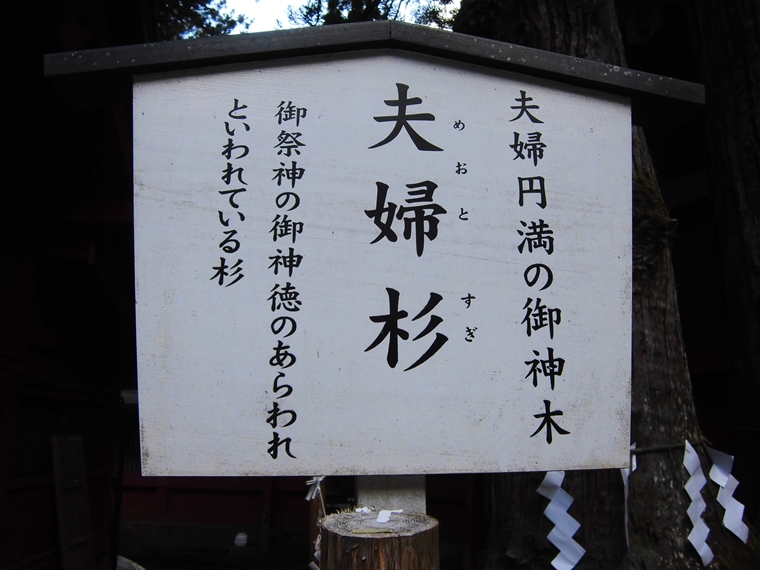 夫婦円満の御神木
夫婦杉
めおと
すぎ
御祭神の御神徳のあらわれ
といわれている杉